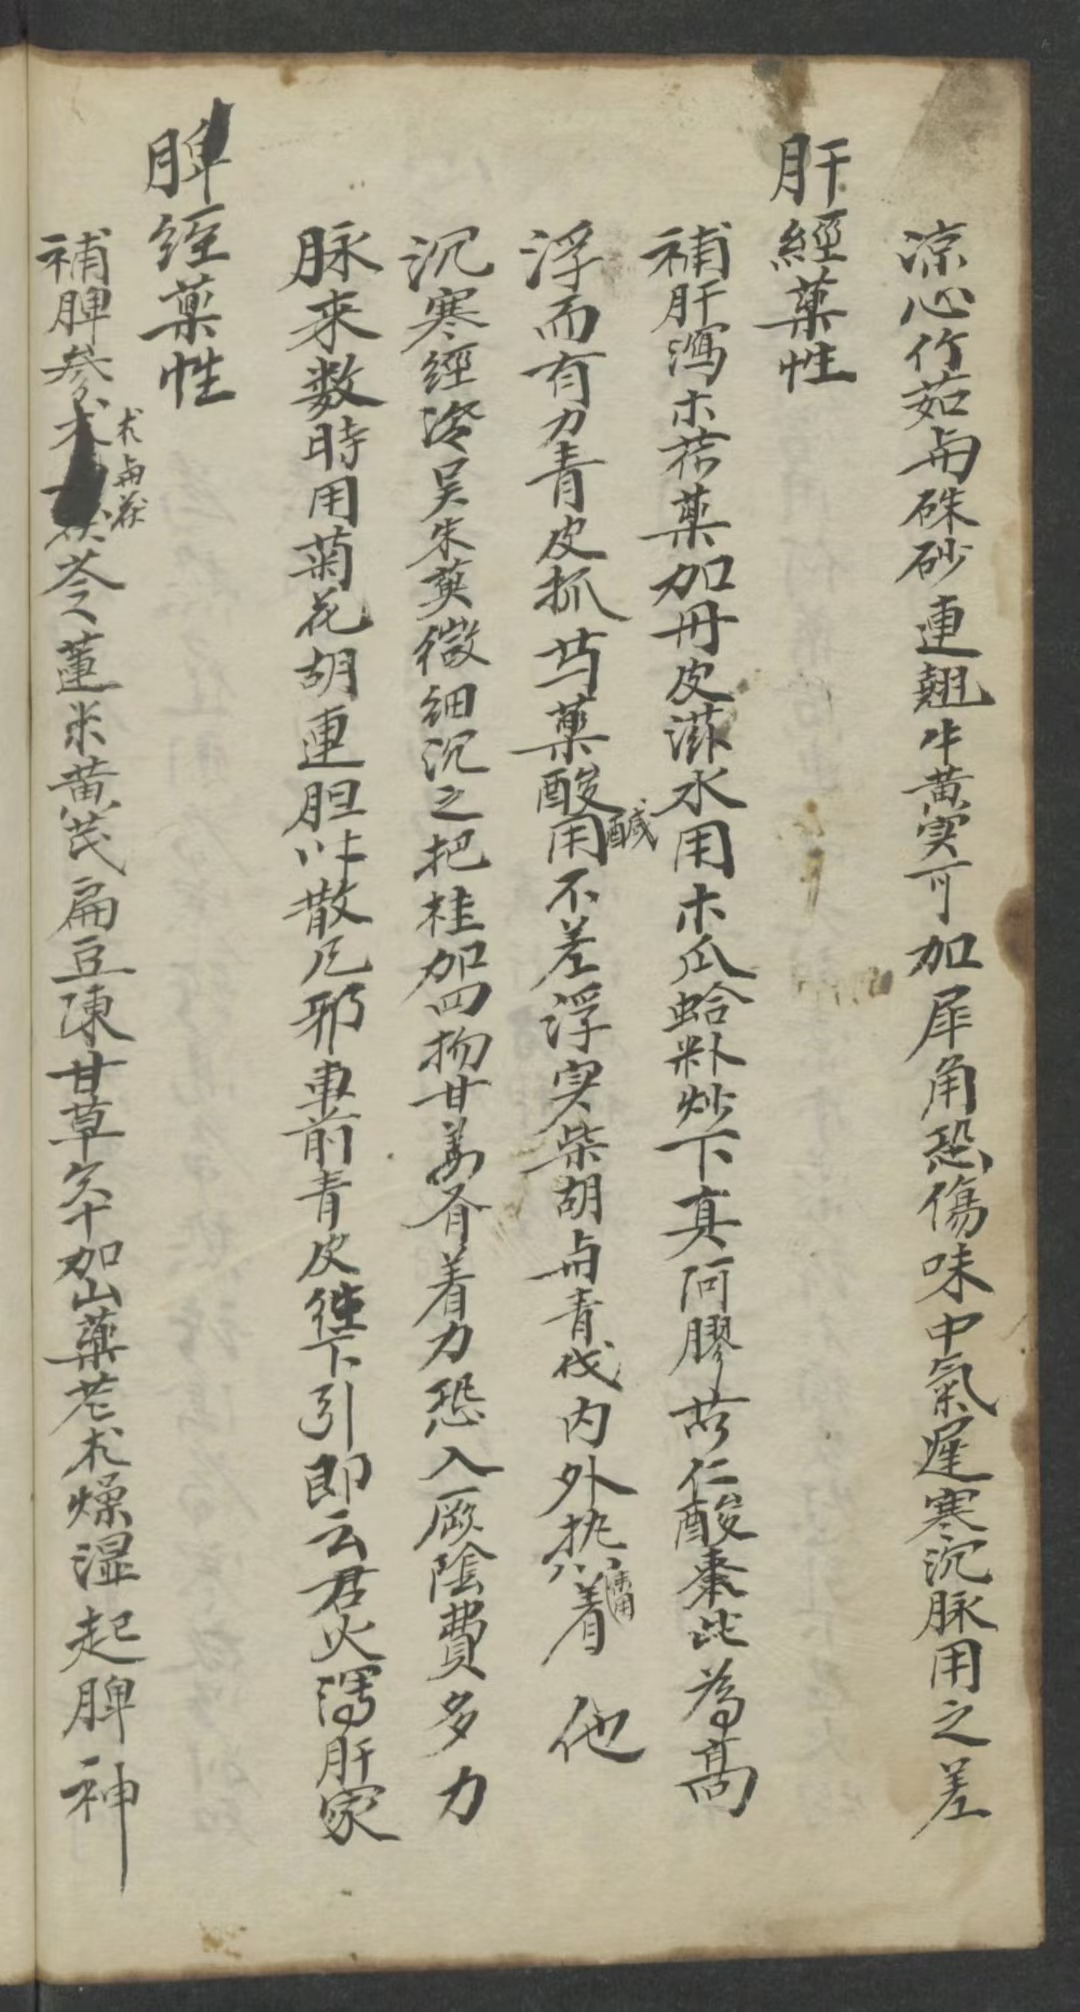 凉心竹茹与硃砂連翹牛黄实可加犀角恐傷味中氣遅寒沉脉用之差
肝經薬性
補肝瀉木桔薬加丹皮滋水用木瓜蛤粉炒下真阿膠苡仁酸棗此為高
浮而有力青皮抓芍薬酸用不差浮实柴胡与青伐内外热着他
醎
沉寒經冷吴朱萸微細沉之把桂加四物甘姜有着力恐入厥陰費多力
脉来数時用菊花胡連胆草散凡邪車前青皮往下引即云君火瀉肝家
脾経薬性
术与茯
補脾参术茯苓莲米黄芪扁豆陳甘草炙干加山薬苍术燥湿起脾神